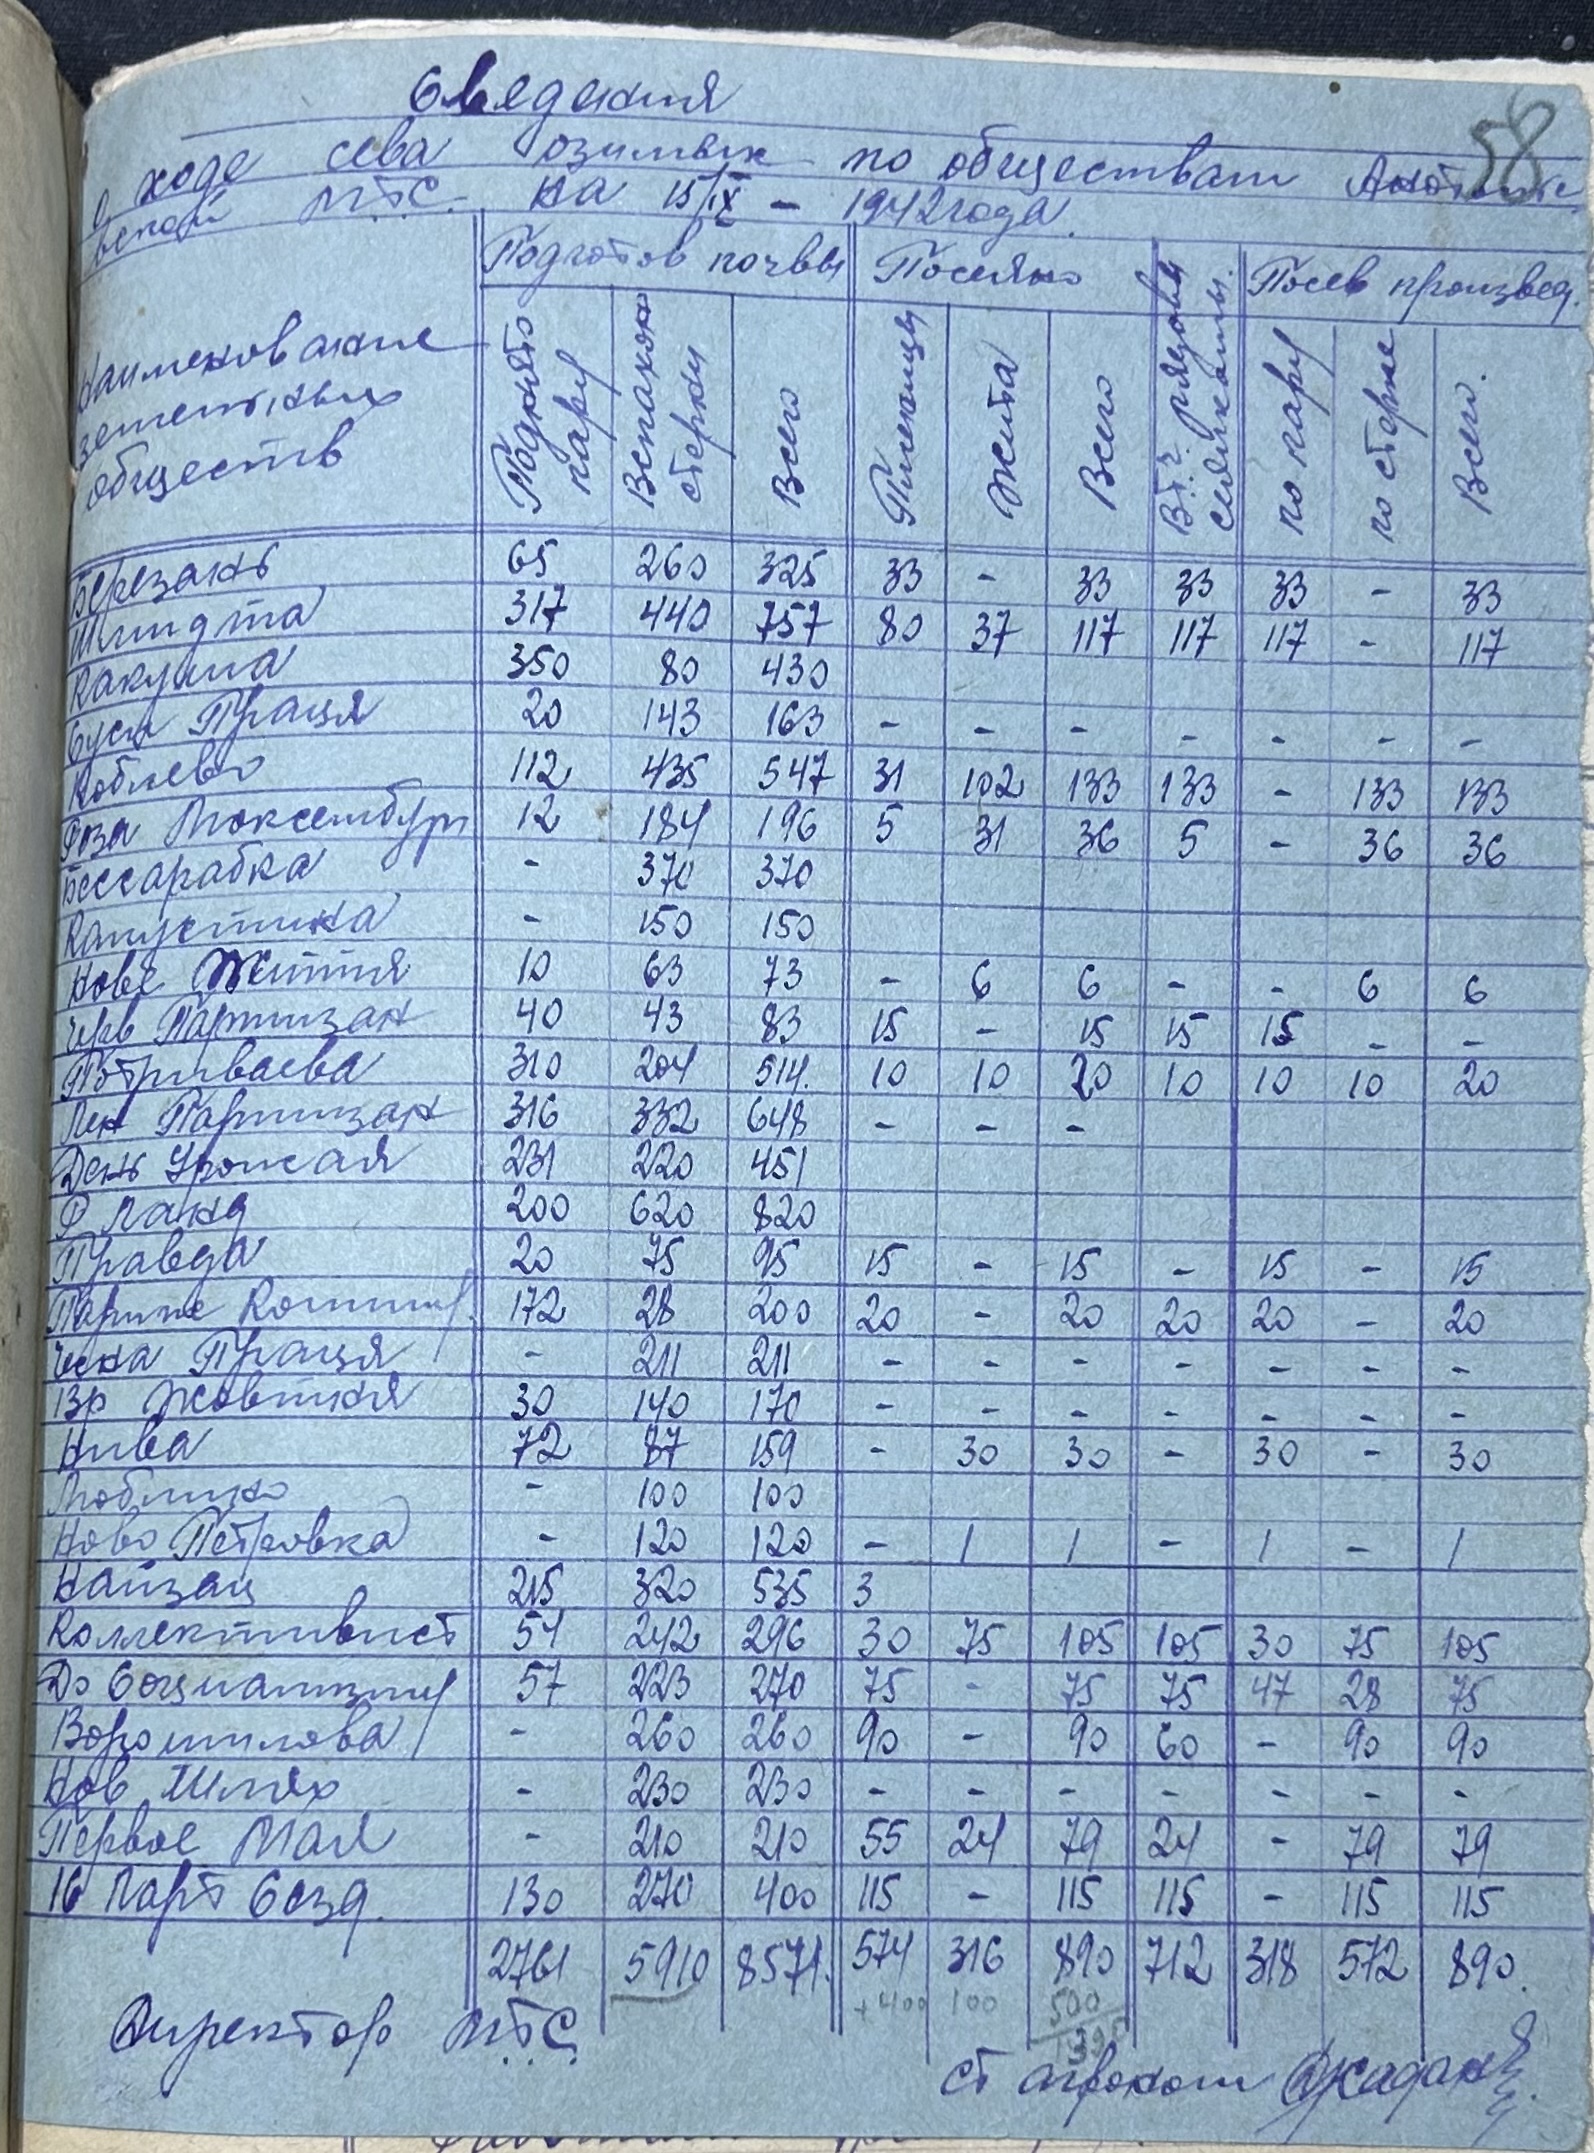 58
Сведения
о ходе сева озимых по обществам
вской МТС. на 15/IX – 1942 года.
Наименование земельных обществ
Подготов почвы Посеяно В т.ч. рядовы сеялками. Посев произвед.
Поднято пару Вспахано стерни Всего Пшеницы Жита Всего по пару по стерне Всего.
Березань 65 260 325 33 - 33 33 33 - 33
Шмидта 317 440 757 80 37 117 117 117 - 117
Ракулиа 350 80 430
Сусп Праця 20 143 163 - - - - - - -
Коблево 112 435 547 31 102 133 133 - 133 133
Роза Люксембург 12 184 196 5 31 36 5 - 36 36
Бессарабка - 370 370
Капустина - 150 150
Нове Життя 10 63 73 - 6 6 - - 6 6
Черв Партизан 40 43 83 15 - 15 15 15 - -
Петриваева 310 204 514. 10 10 20 10 10 10 20
Лен Партизан 316 332 648 - - -
День Урожая 231 220 451
Ф ланд 200 620 820
Правда 20 75 95 15 - 15 - 15 - 15
Париж Коммун 172 28 200 20 - 20 20 20 - 20
Чесна Праця - 211 211 - - - - - - -
13р Жовтня 30 140 170 - - - - - - -
Нива 72 87 159 - 30 30 - 30 - 30
- 100 100
Ново Петровка - 120 120 - 1 1 - 1 - 1
Найзац 215 320 535 3
Коллективист 54 242 296 30 75 105 105 30 75 105
До Социализму 57 223 270 75 - 75 75 47 28 75
Ворошилова - 260 260 90 - 90 60 - 90 90
Нов Шлях - 230 230 - - - - - - -
Первое Мая - 210 210 55 24 79 24 - 79 79
16 Парт Сезд. 130 270 400 115 - 115 115 - 115 115
2761 5910 8571. 574 316 890 712 318 572 890.
+400 100 500
Директор МТС
ст агроном Джадан